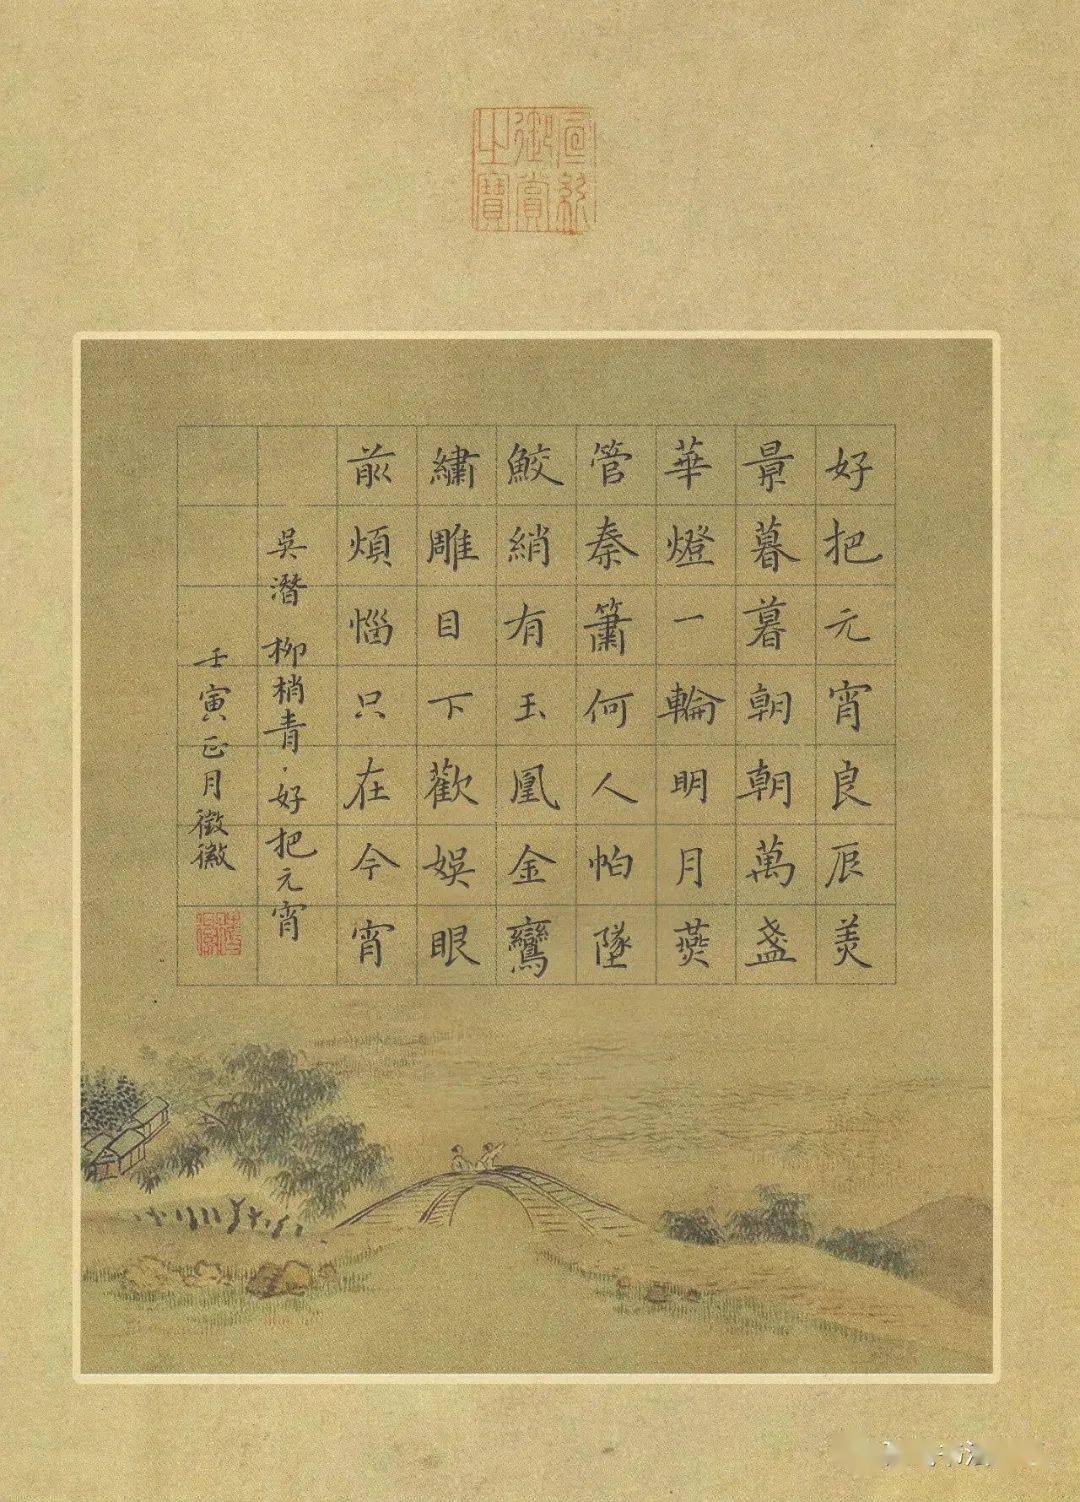 宣統御賞之寶
好把元宵良辰美
景暮暮朝朝萬盞
華燈一輪明月燕
管秦簫何人怕墜
鮫綃有玉凰金鸞
繡雕目下歡娛眼
前煩惱只在今宵
吳潛 柳梢青·好把元宵
壬寅正月